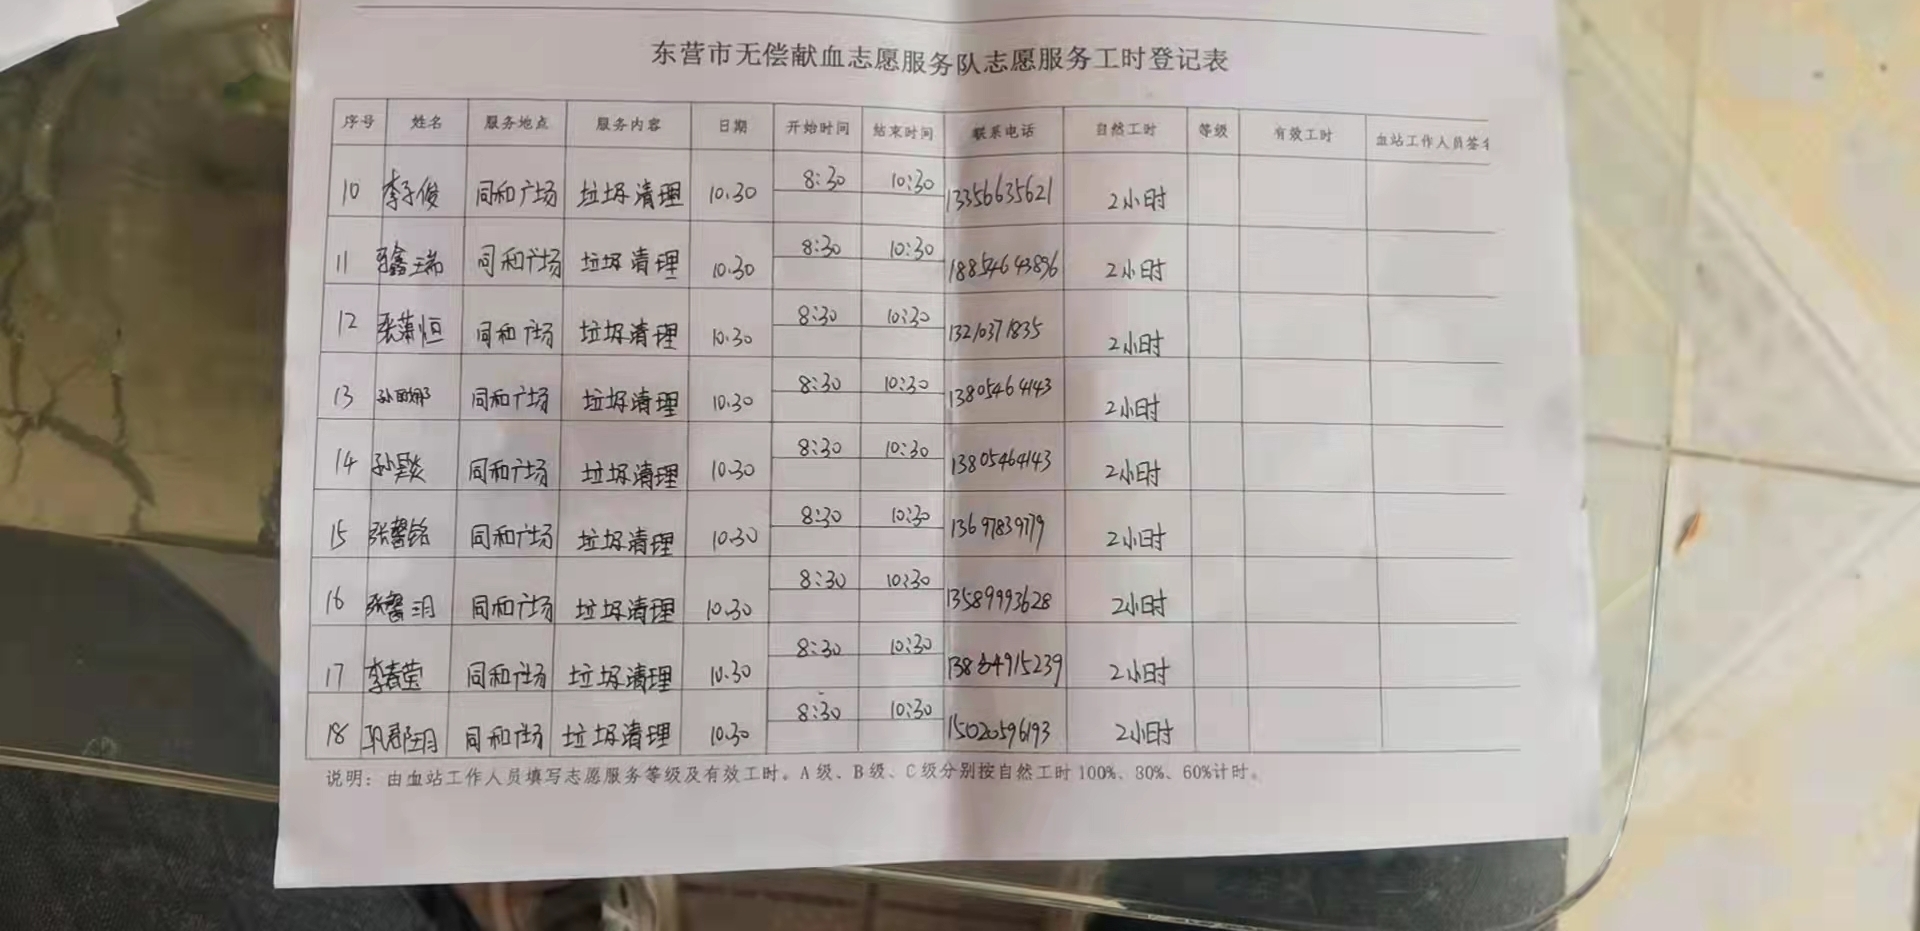 东营市无偿献血志愿服务队志愿服务工时登记表
序号 姓名 服务地点 服务内容 日期 开始时间 结束时间 联系电话 自然工时 等级 有效工时 血站工作人员签名
10 李子俊 同和广场 垃圾清理 10.30 8:30 10:30 13356635621 2小时
11 鑫瑞 同和广场 垃圾清理 10.30 8:30 10:30 18854643896 2小时
12 张蒲恒 同和广场 垃圾清理 10.30 8:30 10:30 13210371835 2小时
13 孙丽娜 同和广场 垃圾清理 10.30 8:30 10:30 13805464143 2小时
14 孙 同和广场 垃圾清理 10.30 8:30 10:30 13805464143 2小时
15 张馨铭 同和广场 垃圾清理 10.30 8:30 10:30 13697839779 2小时
16 张馨玥 同和广场 垃圾清理 10.30 8:30 10:30 13589993628 2小时
17 李春莹 同和广场 垃圾清理 10.30 8:30 10:30 2小时
18 巩郡玥 同和广场 垃圾清理 10.30 8:30 10:30 15020596193 2小时
说明：由血站工作人员填写志愿服务等级及有效工时。A级、B级、C级分别按自然工时100%、80%、60%计时。